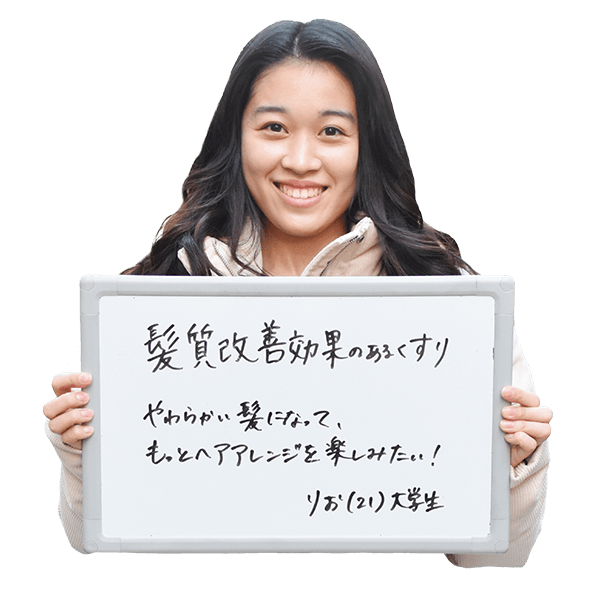 髪質改善効果のあるくすり
やわらかい髪になって、
もっとヘアアレンジを楽しみたい!
りお(21)大学生